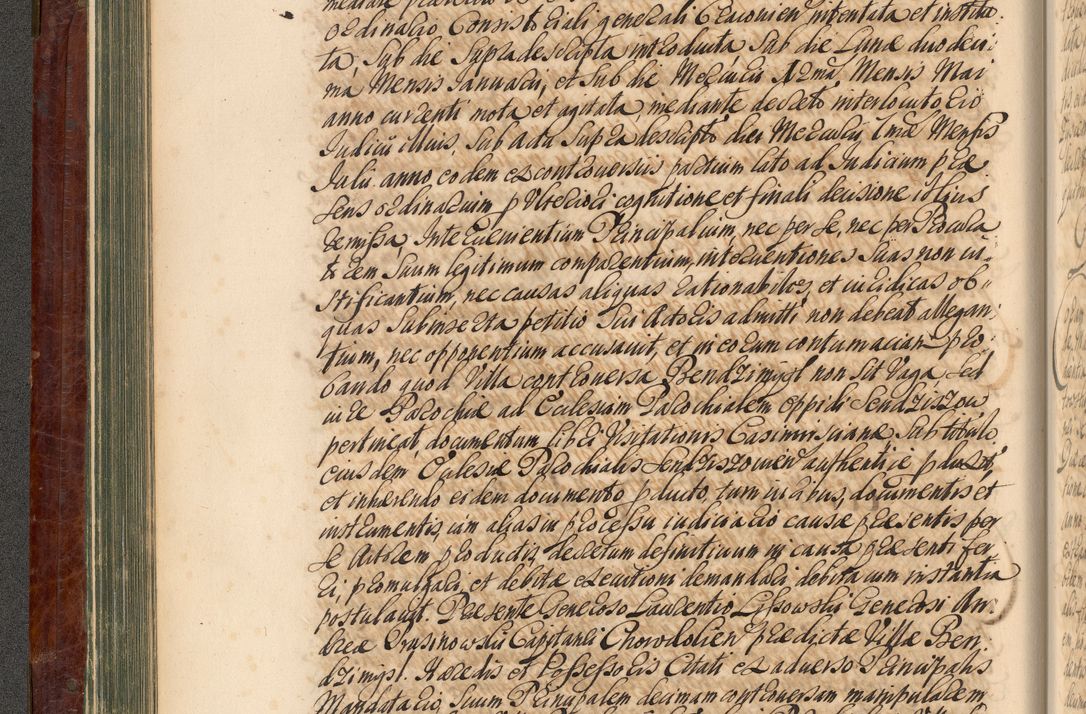 ordinario Consistoriali generali Cracovien intentata et institu
ta, Sub die Supradescripta introducta Sub die Lunæ duodeci
ma Mensis Januarii, et Sub die Mercurii Mensis Maii
anno currenti mota et agitata, mediante decreto interlocutorio
Judicii illius, Sub actu Supradescripto diei Mercurii Imæ Mensis
Julii anno eodem ex controversiis partium lato ad Judicium præ
sens ordinarium p Ulteriori cognitione et finali decisione illius
remissa, Intervenientium Principalium, nec per se, nec per Procura
torem Suum legitimum comparentium, interventiones Suas non iu
stificantium, nec causas aliquas rationabiles et iuridicas ob
quas Subinserta petitio Sui Actoris admitti non debeat allegan
tium, nec opponentium accusavit, et in eorum contumaciam pro
bando quod Villa controversa Bendzimysl non Sit Vaga, Sed
iure Parochiæ ad Ecclesiam Parochialem oppidi Sendziszow
pertineat, documentum libri Visitationis Casimirscianæ Sub titulo
eiusdem Ecclesiæ Parochialis Sendziszovien authentice
et inhærendo eidem documento pducto, tum iuribus, documentis et
instrumentis, iam alias in processu iudiciario causæ præsentis per
Se Actorem productis, decretum definitivum in causa præsenti fer
ri, promulgari, et debitæ executioni demandari, debita cum instantia
postulavit. Præsente Generoso Laurentio Generosi An
dreæ Capitanei Præedictæ Villæ Ben
dzimysl Hæredis et Possessoris Citati ex adverso Principalis
Mandatario, Suum Principalem decimam controversam manipularem